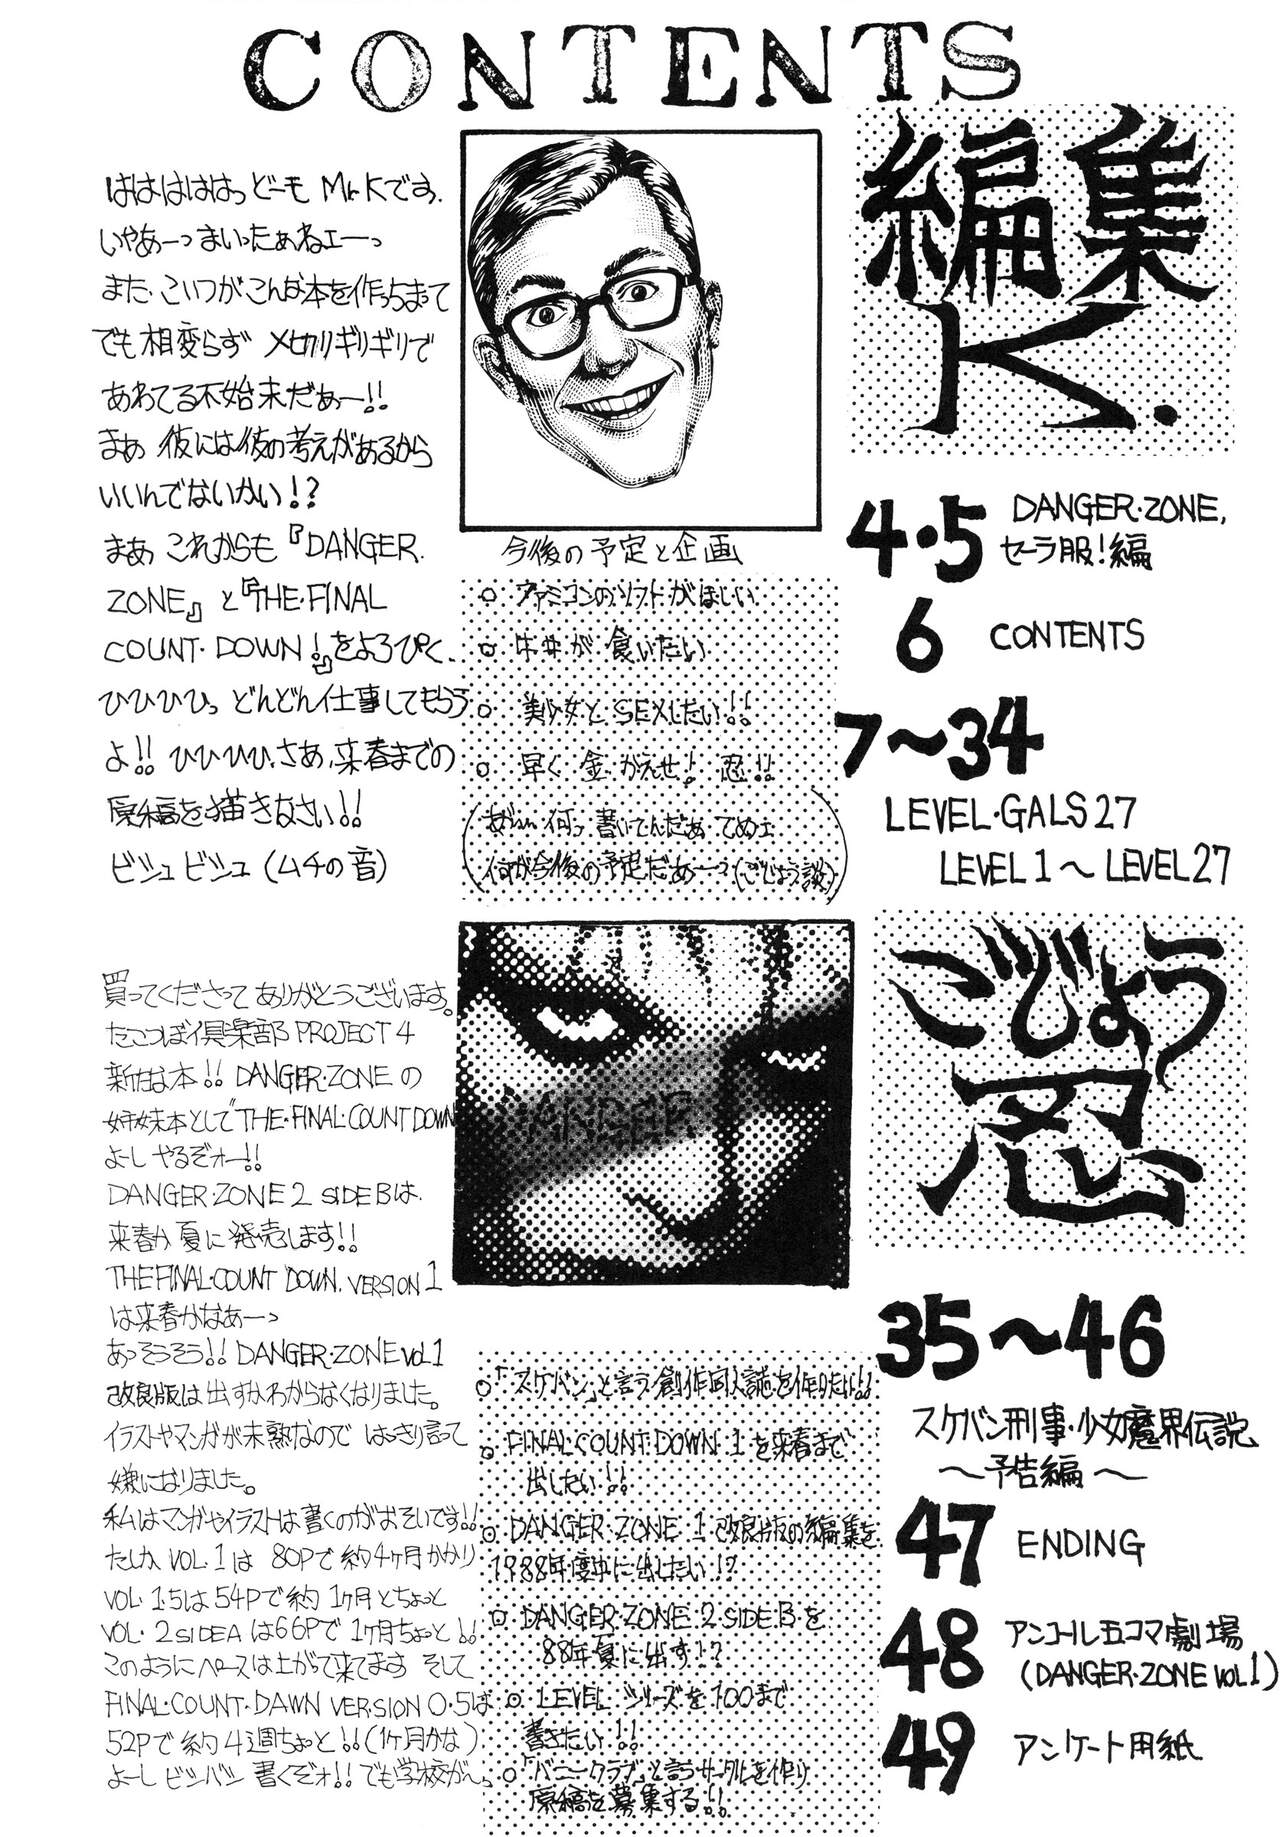 CONTENTS
はははははっ どーも Mr.Kです.
いやあーっまいったぁねェーっ
また、こいつがこんな本を作っちまって
でも相変らず メ切りギリギリで
あわてる不始末だぁー!!
まぁ 彼には彼の考えがあるから
いいんでないかい!?
まぁ これからも『DANGER.
ZONE』と『THE・FINAL
COUNT・DOWN!』をよろぴく.
ひひひひっ どんどん仕事してもらう
よ!! ひひひひ、さあ、来春までの
原稿を描きなさい!!
ビシュ ビシュ (ムチの音)
編集
K.
今後の予定と企画
○ ファミコンのソフトがほしい
○ 牛丼が食いたい
○ 美少女とSEXしたい!!
○ 早く 金、かえせ! 忍!!
何っ 書いてんだぁ てめェ
何が今後の予定だぁーっ?(ごじょう談)
4・5 DANGER・ZONE,
セーラ服!編
6 CONTENTS
7〜34
LEVEL・GALS27
LEVEL1〜LEVEL27
買ってくださって ありがとうございます。
たこつぼ倶楽部 PROJECT 4
新たな本!! DANGER・ZONEの
姉妹本として THE・FINAL・COUNT DOWN
よーし やるぞォー!!
DANGER・ZONE 2 SIDE Bは.
来春か夏に発売します!!
THE FINAL・COUNT DOWN. VERSION 1
は来春かなあーっ
あっそうそう!! DANGER・ZONE VOL1
改良版は出すかわからなくなりました。
イラストやマンガが未熟なので はっきり言って
嫌になりました。
私はマンガやイラストは書くのがおそいです!!
たしか VOL・1は 80Pで約4ヶ月かかり
VOL・1.5は54Pで約 1ヶ月とちょっと
VOL・2 SIDE Aは66Pで 1ヶ月ちょっと!!
このようにペースは上がって来てます そして
FINAL・COUNT・DAWN VERSION 0.5は
52Pで約4週ちょっと!!(1ヶ月かな)
よーし ビシバシ 書くぞォ!! でも学校がん。
DANGER
ごじょう
忍
○「スケバン」と言う創作同人誌を作りたい!!
○ FINAL・COUNT・DOWN 1を来春まで
出したい!!
○ DANGER・ZONE 1 改良版の編集を
1988年度中に出したい!?
○ DANGER・ZONE 2 SIDE Bを
88年夏に出す!?
○ LEVEL シリーズを100まで
書きたい!!
○「バニークラブ」と言うサークルを作り
原稿を募集する!!
35〜46
スケバン刑事・少女魔界伝説
〜予告編〜
47 ENDING
48 アンコール五コマ劇場
(DANGER・ZONE VOL1)
49 アンケート用紙